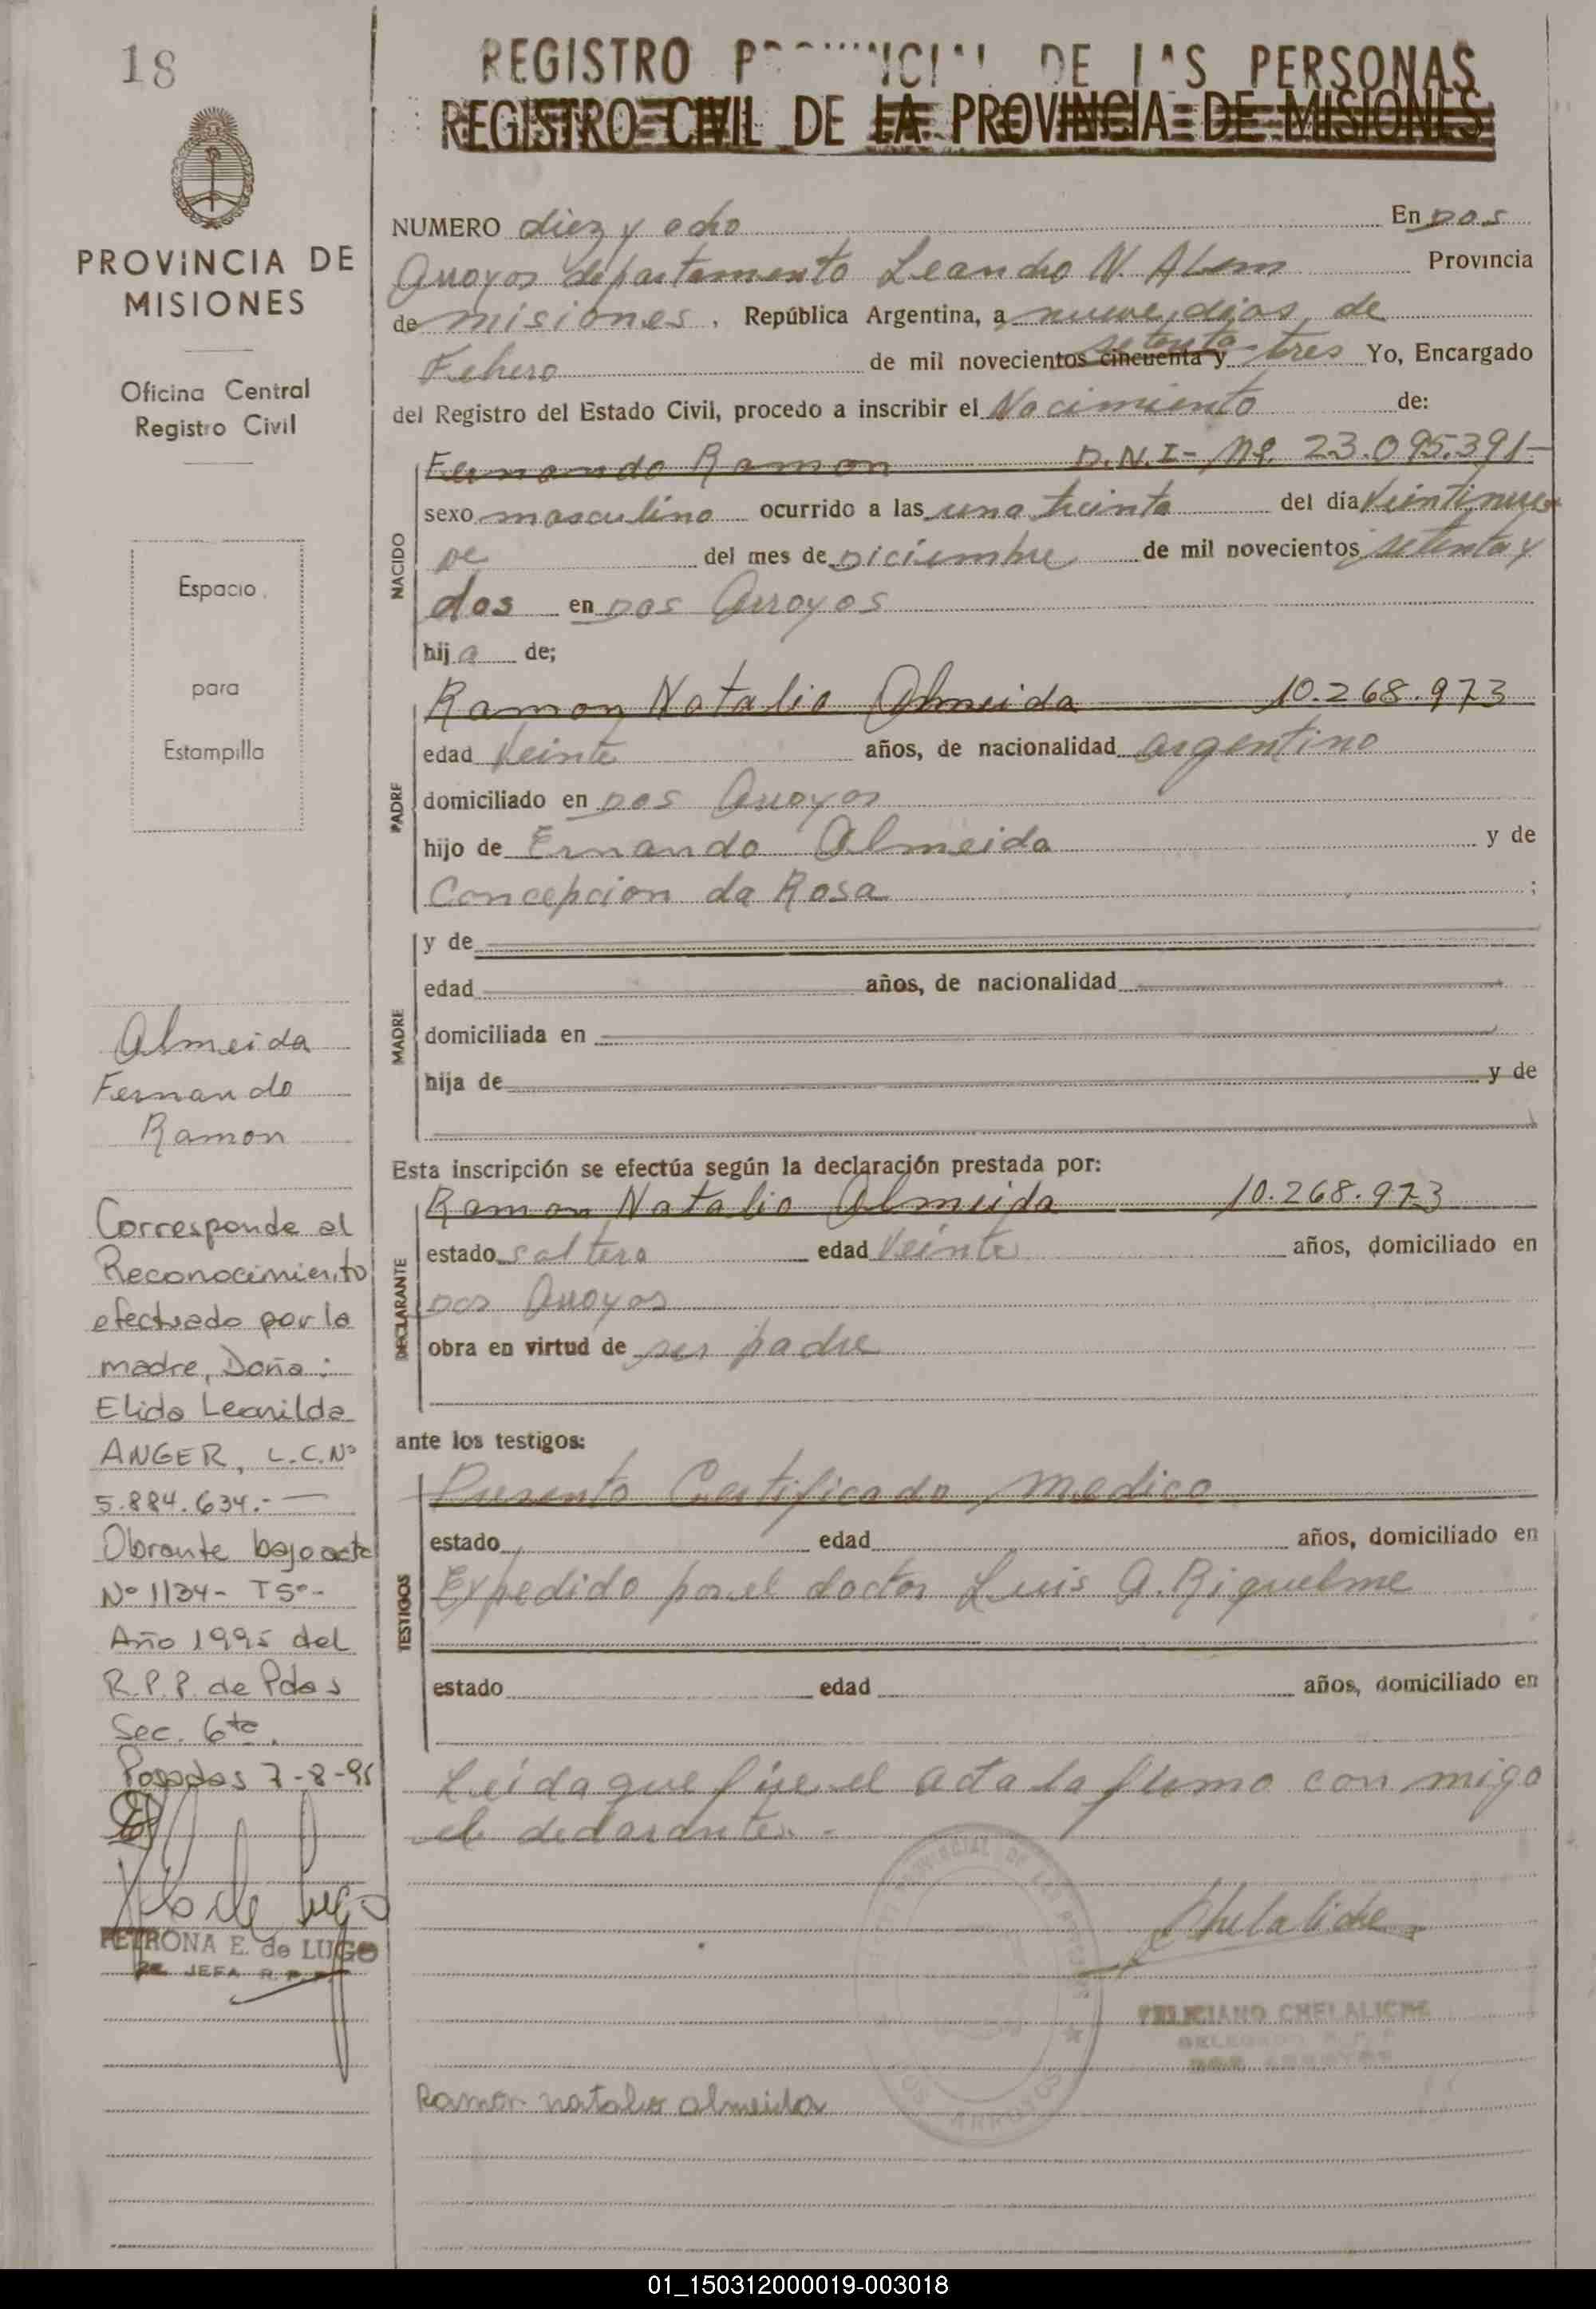 18
REGISTRO PROVINCIAL DE LAS PERSONAS
REGISTRO CIVIL DE LA PROVINCIA DE MISIONES
PROVINCIA DE
MISIONES
Oficina Central
Registro Civil
Espacio
para
Estampilla
Almeida
Fernando
Ramon
Corresponde al
Reconocimiento
efectuado por la
madre, Doña:
Elida Leonilda
ANGER, L.C.Nº
5.884.634.-
Obrante bajo acta
Nº 1134- T5º-
Año 1995 del
R.P.P. de Pdas
Sec. 6ta.
Posadas 7-8-95
PETRONA E. de LUGO
JEFA R. P. P.
NUMERO diez y ocho En Dos
Arroyos departamento Leandro N. Alem Provincia
de misiones, República Argentina, a nueve dias de
Febero de mil novecientos cincuenta y setenta tres Yo, Encargado
del Registro del Estado Civil, procedo a inscribir el Nacimiento de:
NACIDO
Fernando Ramon D.N.I- Nº 23.095.391-
sexo masculino ocurrido a las una treinta del día Veintinue
ve del mes de Diciembre de mil novecientos setenta y
dos en Dos Arroyos
hijo de;
PADRE
Ramon Natalio Almeida 10.268.973
edad Veinte años, de nacionalidad argentino
domiciliado en Dos Arroyos
hijo de Ernando Almeida y de
Concepcion da Rosa ;
MADRE
y de
edad años, de nacionalidad
domiciliada en
hija de y de
Esta inscripción se efectúa según la declaración prestada por:
DECLARANTE
Ramon Natalio Almeida 10.268.973
estado soltero edad Veinte años, domiciliado en
Dos Arroyos
obra en virtud de ser padre
ante los testigos:
TESTIGOS
Presento Certificado medico
estado edad años, domiciliado en
Expedido por el doctor Luis A. Riquelme
estado edad años, domiciliado en
Leida que fue el acta la firmo con migo
el declarante.-
Chelaliche
FELICIANO CHELALICHE
DELEGADO R. P. P.
DOS ARROYOS
Ramon natalio almeida
01_150312000019-003018